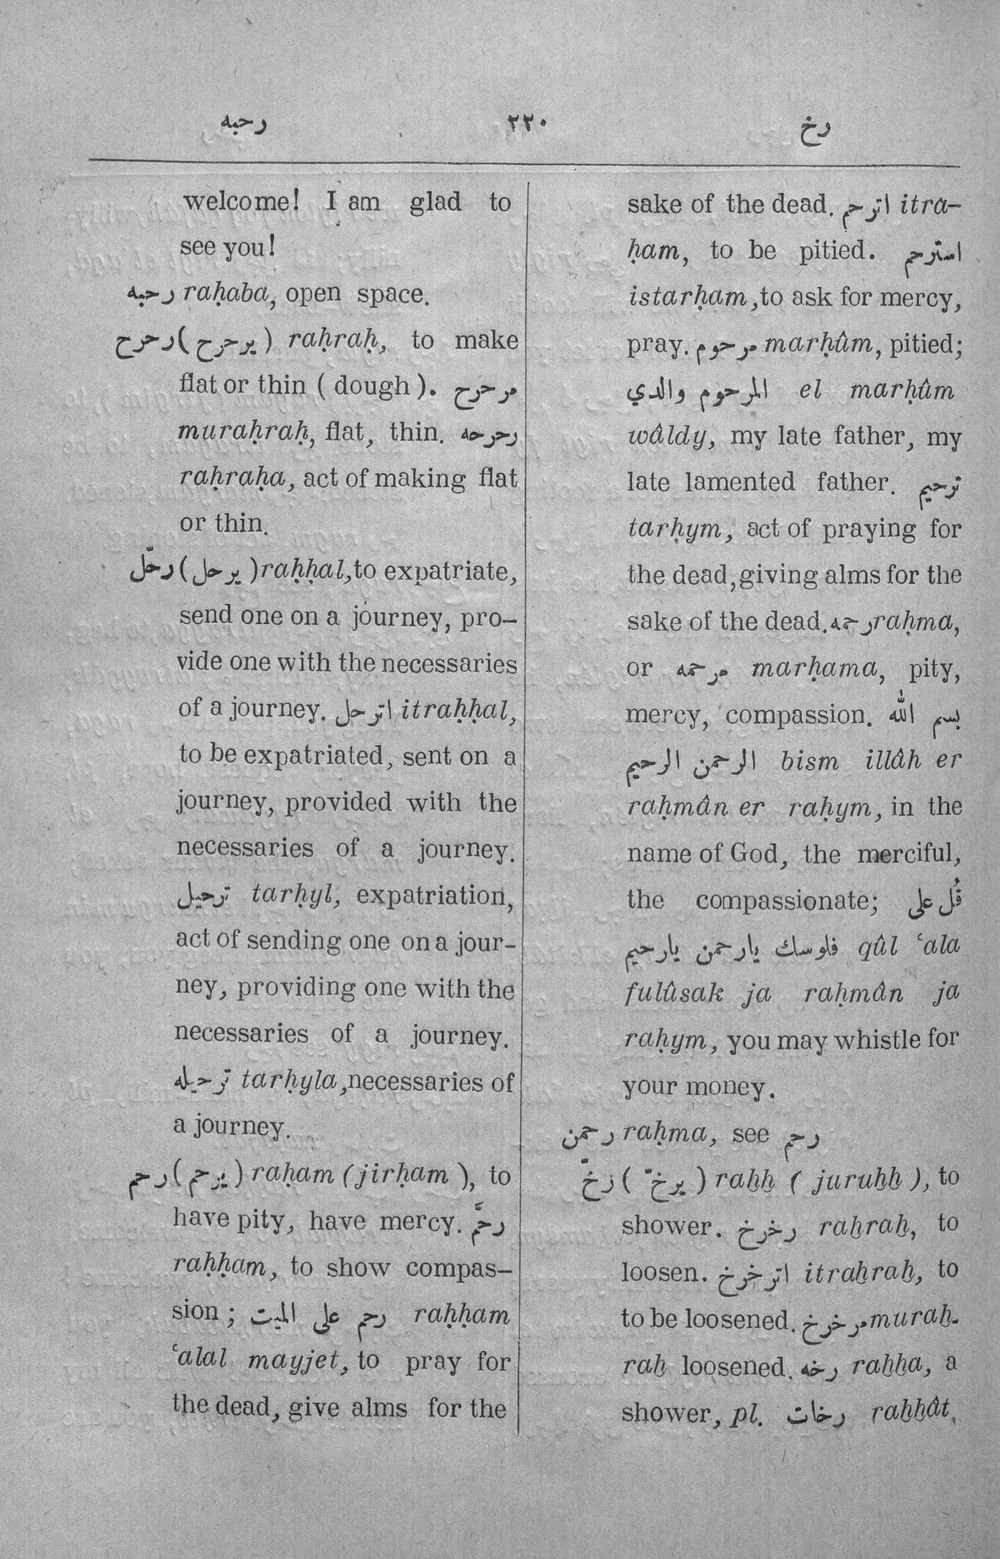 رحبه ٢٢٠ رخ
welcome! I am glad to
see you!
رحبه raḥaba, open space.
رحرح (يرحرح) raḥraḥ, to make
flat or thin (dough). مرحرح
muraḥraḥ, flat, thin. رحرحه
raḥraḥa, act of making flat
or thin.
رحّل (يرحل) raḥḥal, to expatriate,
send one on a journey, pro-
vide one with the necessaries
of a journey. اترحل itraḥḥal,
to be expatriated, sent on a
journey, provided with the
necessaries of a journey.
ترحيل tarḥyl, expatriation,
act of sending one on a jour-
ney, providing one with the
necessaries of a journey.
ترحيله tarḥyla, necessaries of
a journey.
رحم (يرحم) raḥam (jirḥam), to
have pity, have mercy. رحَّم
raḥḥam, to show compas-
sion; رحم على الميت raḥḥam
ʿalal mayjet, to pray for
the dead, give alms for the
sake of the dead. اترحم itra-
ḥam, to be pitied. استرحم
istarḥam, to ask for mercy,
pray. مرحوم marḥûm, pitied;
المرحوم والدي el marḥûm
wâldy, my late father, my
late lamented father. ترحيم
tarḥym, act of praying for
the dead, giving alms for the
sake of the dead. رحمه raḥma,
or مرحمه marḥama, pity,
mercy, compassion. بسم الله
الرحمن الرحيم bism illâh er
raḥmân er raḥym, in the
name of God, the merciful,
the compassionate; قُل على
فلوسك يارحمن يارحيم qûl ʿala
fulûsak ja raḥmân ja
raḥym, you may whistle for
your money.
رحمن raḥma, see رحم
زخّ (يرخّ) raḫḫ (juruḫḫ), to
shower. رخرخ raḫraḫ, to
loosen. اترخرخ itraḫraḫ, to
to be loosened. مرخرخ muraḫ-
raḫ loosened. رخه raḫḫa, a
shower, pl. رخات raḫḫât.